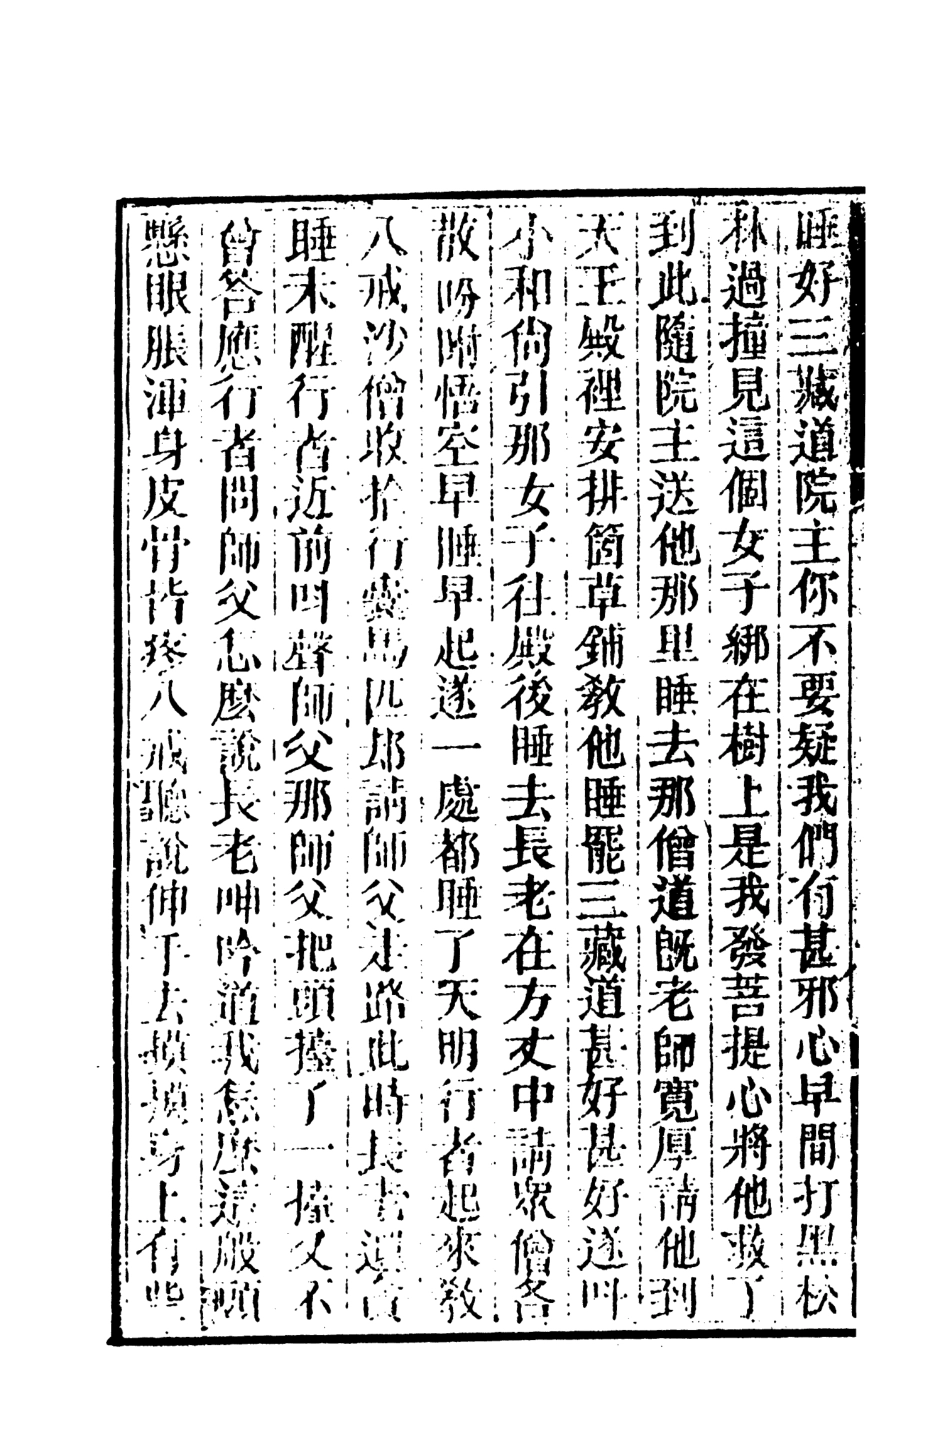 睡好三藏道院主你不要疑我們有甚邪心早間打黑松
林過撞見這個女子綁在樹上是我發菩提心將他救了
到此隨院主送他那里睡去那僧道旣老師寬厚請他到
天王殿裡安排箇草鋪教他睡罷三藏道甚好甚好遂叫
小和尙引那女子往殿後睡去長老在方丈中請眾僧各
散吩咐悟空早睡早起遂一處都睡了天明行者起來教
八戒沙僧收拾行囊馬匹却請師父走路此時長老還貪
睡未醒行者近前叫聲師父那師父把頭擡了一擡又不
曾答應行者問師父怎麽說長老呻吟道我怎麽這般頭
懸眼脹渾身皮骨皆疼八戒聽說伸手去摸摸身上有些